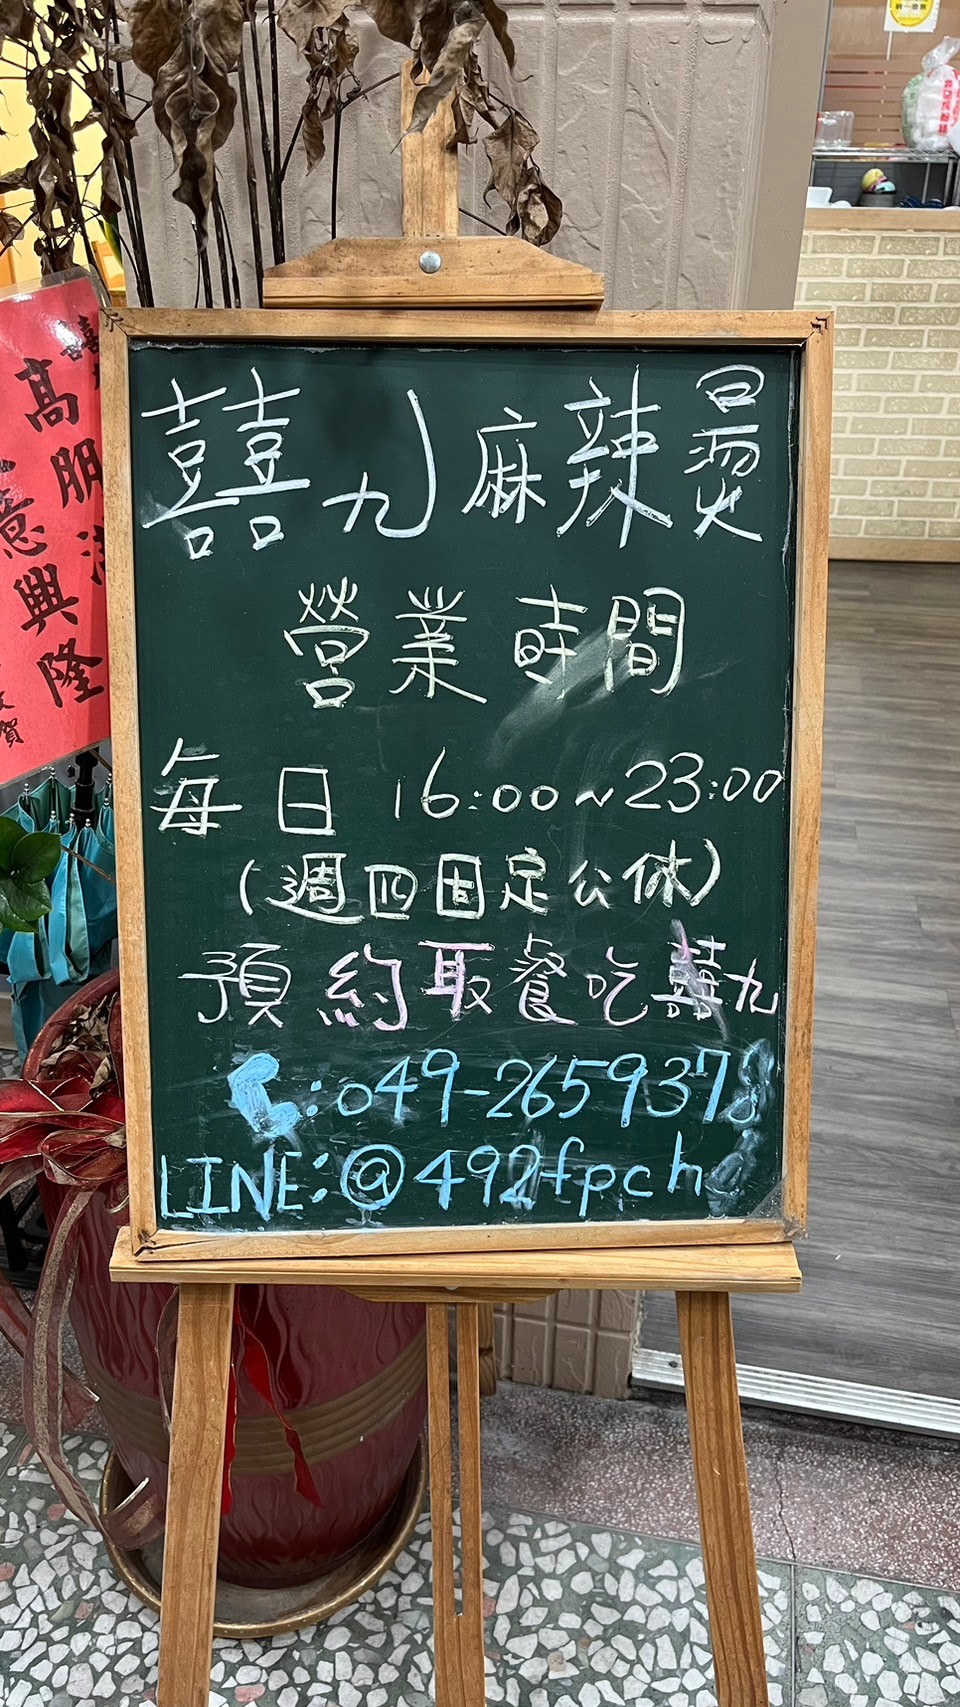 囍九麻辣燙
營業時間
每日 16:00~23:00
(週四固定公休)
預約取餐吃囍九
:049-2659378
LINE:@492fpch
高朋滿
意興隆
賀